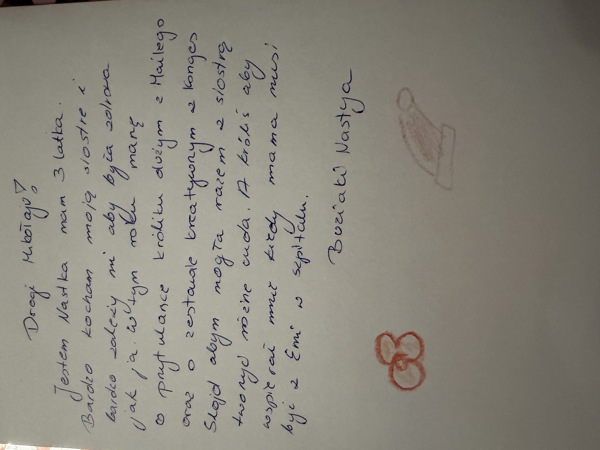 Drogi Mikołaju!
Jestem Nastka mam 3 latka.
Bardzo kocham moją siostrę i
bardzo zależy mi aby była zdrowa
jak ja. W tym roku marzę
o przytulance króliku dużym z Maileg
oraz o zestawie kreatywnym z Konges
Sløjd abym mogła razem z siostrą
tworzyć różne cuda. A króliś aby
wspierał mnie kiedy mama musi
być z Emi w szpitalu.
Buziaki Nastya